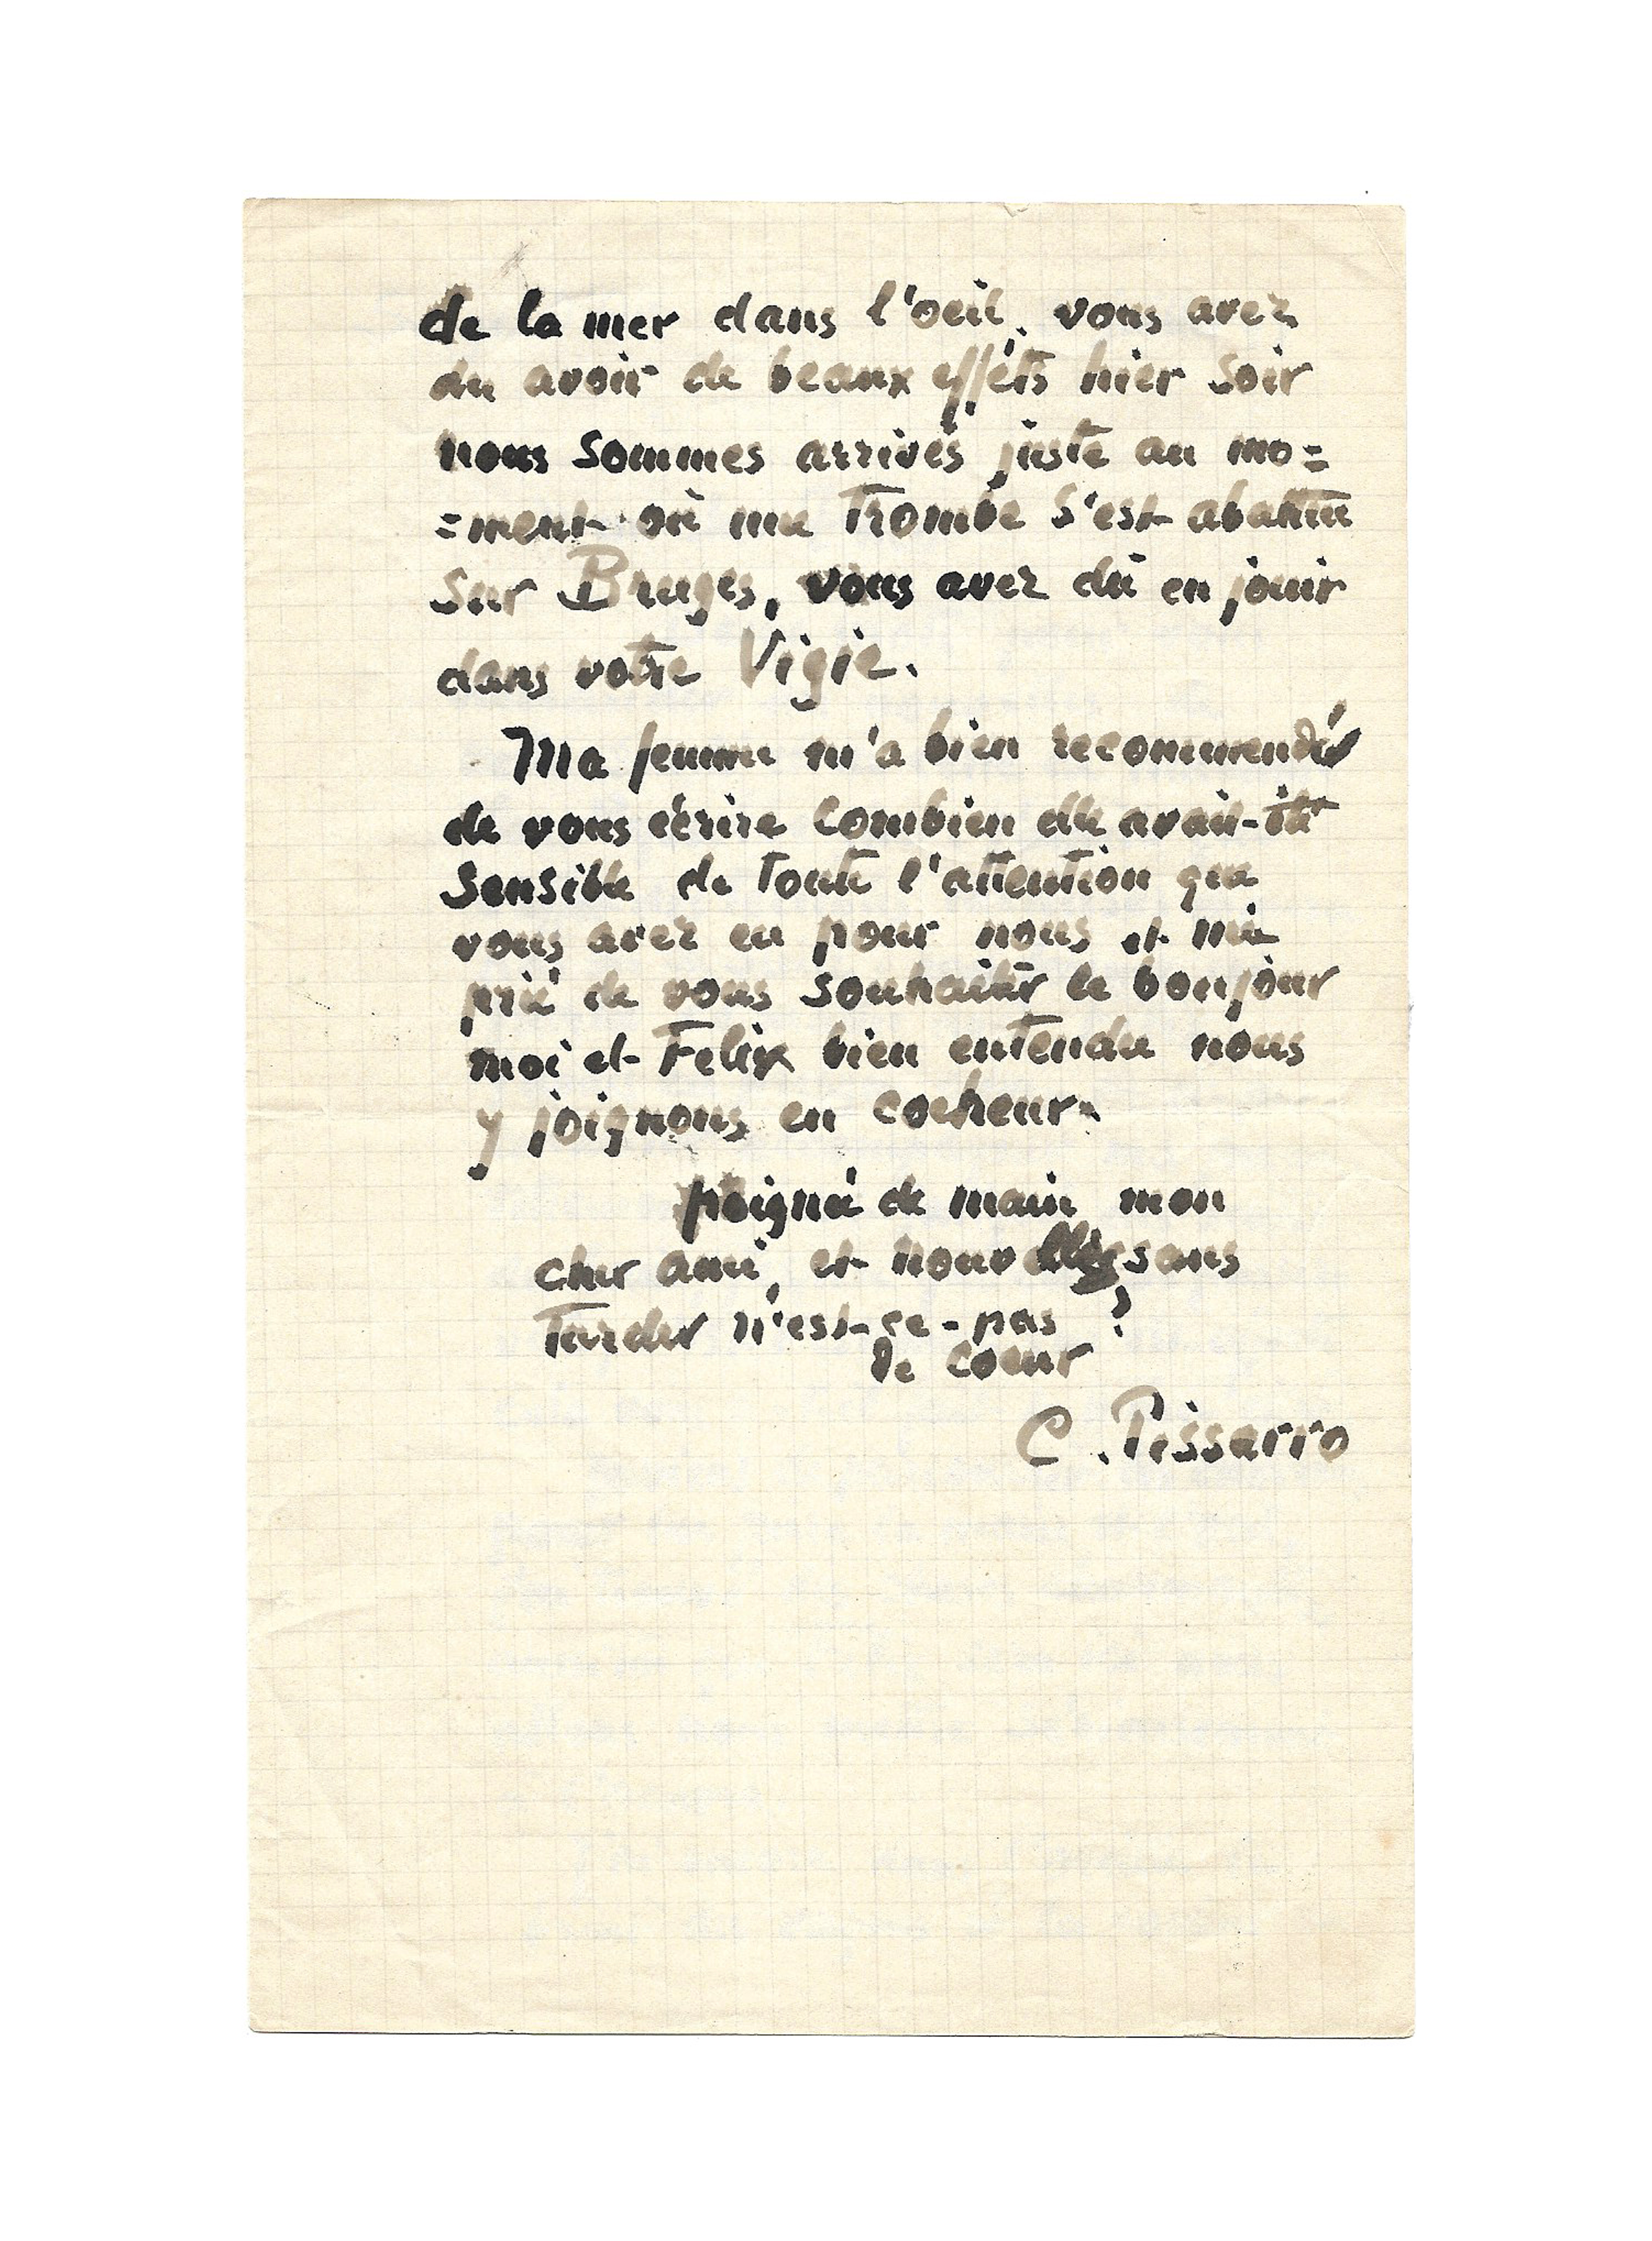 de la mer dans l'oeil. vous avez
du avoir de beaux effets hier soir
nous sommes arrivés juste au mo=
=ment où une Trombe s'est abattue
sur Bruges, vous avez dû en jouir
dans votre Vigie.
Ma femme m'a bien recommendé
de vous écrire combien elle avait-été
sensible de toute l'attention que
vous avez eu pour nous et m'a
prié de vous souhaiter le bonjour
moi et Felix bien entendu nous
y joignons en coeheur.
poigné de main mon
cher ami, et nouvelles sans
Tarder n'est-ce-pas ?
de coeur
C. Pissarro